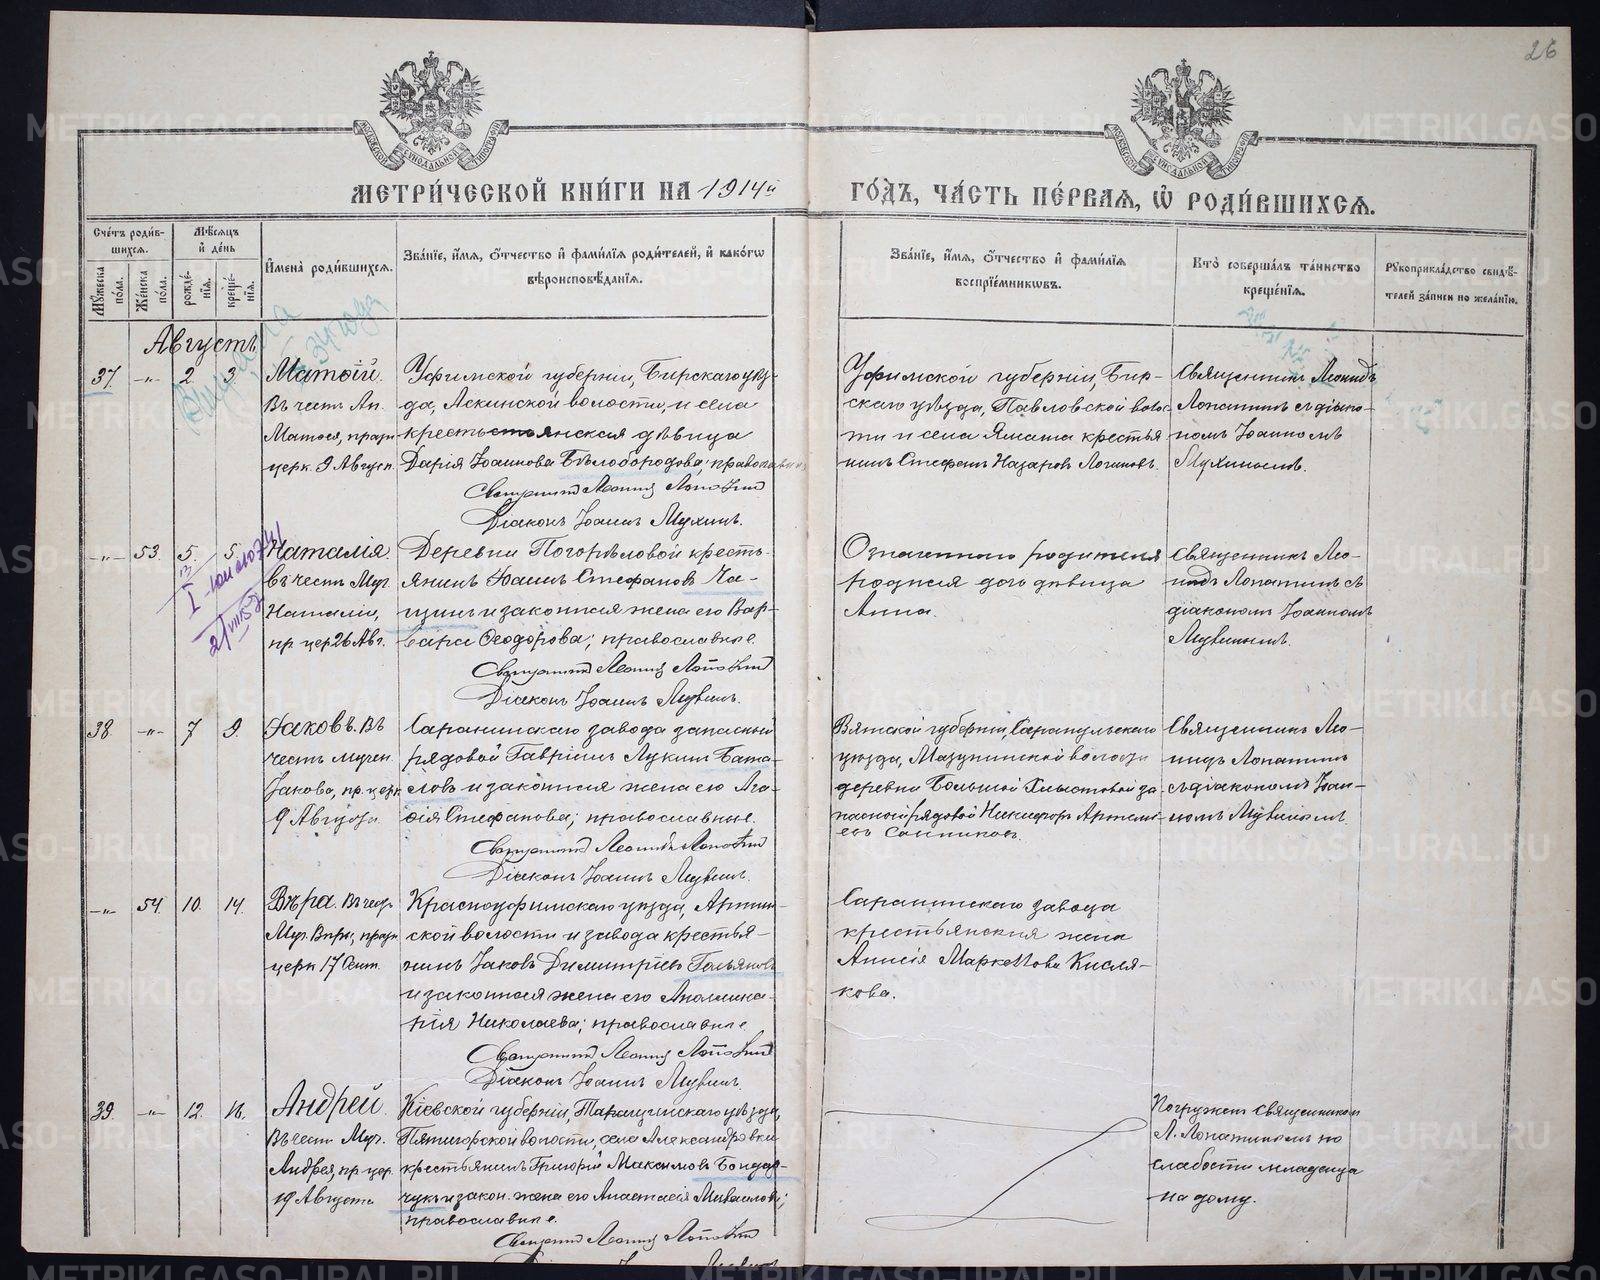 26
МЕТРИ́ЧЕСКОЙ КНИ́ГИ НА 1914й ГО́ДЪ, ЧА́СТЬ ПЕ́РВАЯ, Ѽ РОДИ́ВШИХСЯ.
Сче́тъ роди́в-
шихся.
Мѣ́сяцъ
и҆ де́нь
Мꙋ́жеска
по́ла.
Же́нска
по́ла.
рожде́-
нїя.
креще́-
нїя.
И҆мена̀ роди́вшихся.
Зва́нїе, и҆́мя, ѻ҆́тчество и҆ фами́лїя роди́телей, и҆ како́гѡ
вѣроисповѣ́данїя.
Зва́нїе, и҆́мя, ѻ҆́тчество и҆ фами́лїя
воспрїе́мникѡвъ.
Кто̀ соверша́лъ та́инство
креще́нїя.
Рꙋкоприкла́дство свидѣ́-
телей за́писи по жела́нїю.
Августъ
37. -„- 2. 3.
Матѳій.
Въ честь Ап.
Матѳея, празн
церк. 9 Август.
Уфимской губерніи, Бирскаго уѣз-
да, Аскинской волости, и села
крестьянская дѣвица
Дарія Іоаннова Бѣлобородова; православн
Священникъ Леонидъ Лопатинъ
Діаконъ Іоаннъ Мухинъ.
Уфимской губерніи, Бир-
скаго уѣзда, Павловской воло
сти и села Ямаша крестья
нинъ Стефанъ Назаровъ Логиновъ.
Священникъ Леонидъ
Лопатинъ съ діако-
номъ Іоанномъ
Мухинымъ.
-„- 53. 5. 5.
Наталія.
въ честь Муч.
Наталіи,
пр. цер. 26 Авг.
Деревни Погорѣловой кресть-
янинъ Іоаннъ Стефановъ Ча-
щинъ и законная жена его Вар-
вара Ѳеодорова; православные.
Священникъ Леонидъ Лопатинъ
Діаконъ Іоаннъ Мухинъ.
Означеннаго родителя
родная дочь дѣвица
Анна.
Священникъ Лео-
нидъ Лопатинъ съ
діакономъ Іоанномъ
Мухинымъ.
38. -„- 7 9.
Іаковъ. Въ
честь мучен.
Іакова, пр. церк
9 Августа.
Саранинскаго завода запасный
рядовой Гавріилъ Лукинъ Бата-
ловъ и законная жена его Ага-
фія Стефанова; православные.
Священникъ Леонидъ Лопатинъ
Діаконъ Іоаннъ Мухинъ.
Вятской губерніи, Сарапульскаго
уѣзда, Мазунинской волости
деревни Большой за
пасной рядовой Никифоръ Артемі-
евъ Санниковъ.
Священникъ Лео-
нидъ Лопатинъ
съ діакономъ Іоан-
номъ Мухинымъ.
-„- 54. 10. 14.
Вѣра. Въ чест
Муч. Вѣры, празн
церк 17 Сент.
Красноуфимскаго уѣзда, Артин-
ской волости и завода крестья-
нинъ Іаковъ Димитріевъ Гольяновъ
и законная жена его Аполлина-
рія Николаева; православные.
Священникъ Леонидъ Лопатинъ
Діаконъ Іоаннъ Мухинъ.
Саранинскаго завода
крестьянская жена
Анисія Маркелова Кисля-
кова.
39. -„- 12. 16.
Андрей.
Въ честь Муч.
Андрея, пр. цер.
19 Августа
Кіевской губерніи, Таращинскаго уѣзда,
Пятигорской волости, села Александровки
крестьянинъ Григорій Максимовъ Бондар-
чукъ и закон. жена его Анастасія Михаилова;
православные.
Священникъ Леонидъ Лопатинъ
Погружен священником
Л. Лопатинымъ по
слабости младенца
на дому.